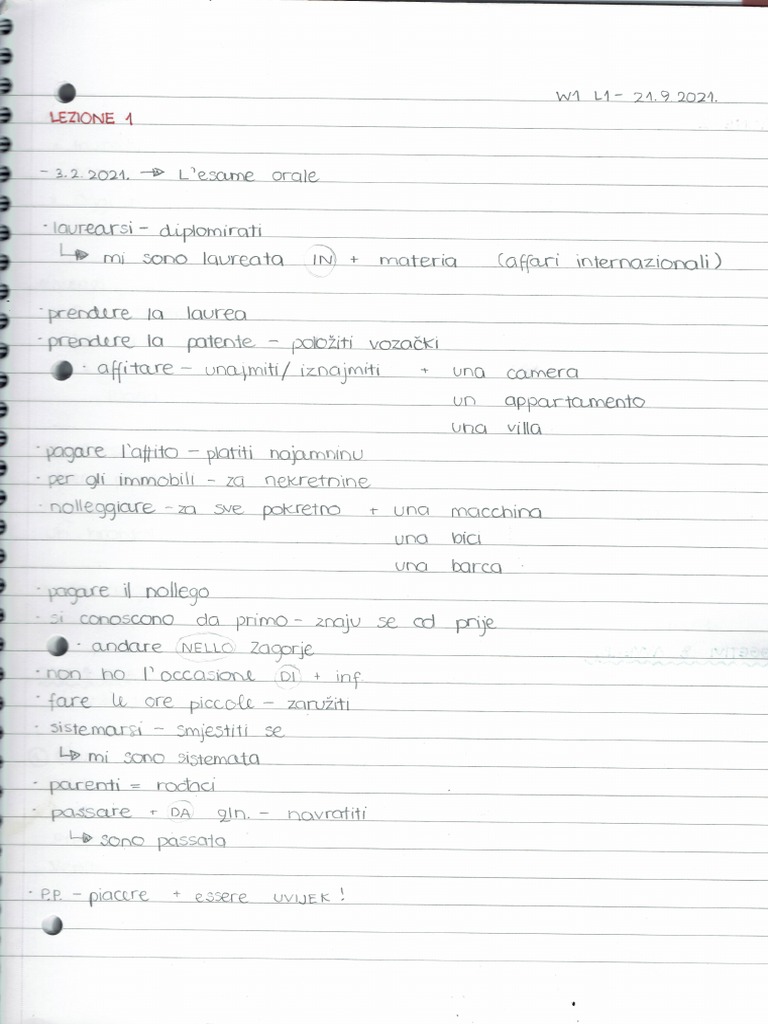 W1 L1 - 21.9 2021.
LEZIONE 1
- 3.2.2021. → L'esame orale
· laurearsi - diplomirati
↳ mi sono laureata IN + materia (affari internazionali)
· prendere la laurea
· prendere la patente - položiti vozački
· affitare - unajmiti/ iznajmiti + una camera
un appartamento
una villa
· pagare l'affito - platiti najamninu
· per gli immobili - za nekretnine
· nolleggiare - za sve pokretno + una macchina
una bici
una barca
· pagare il nollego
· si conoscono da primo - znaju se od prije
· andare NELLO Zagorje
· non ho l'occasione DI + inf.
· fare le ore piccole - zaružiti
· sistemarsi - smjestiti se
↳ mi sono sistemata
· parenti = rođaci
· passare + DA gln. - navratiti
↳ sono passata
· P.P. - piacere + essere UVIJEK!